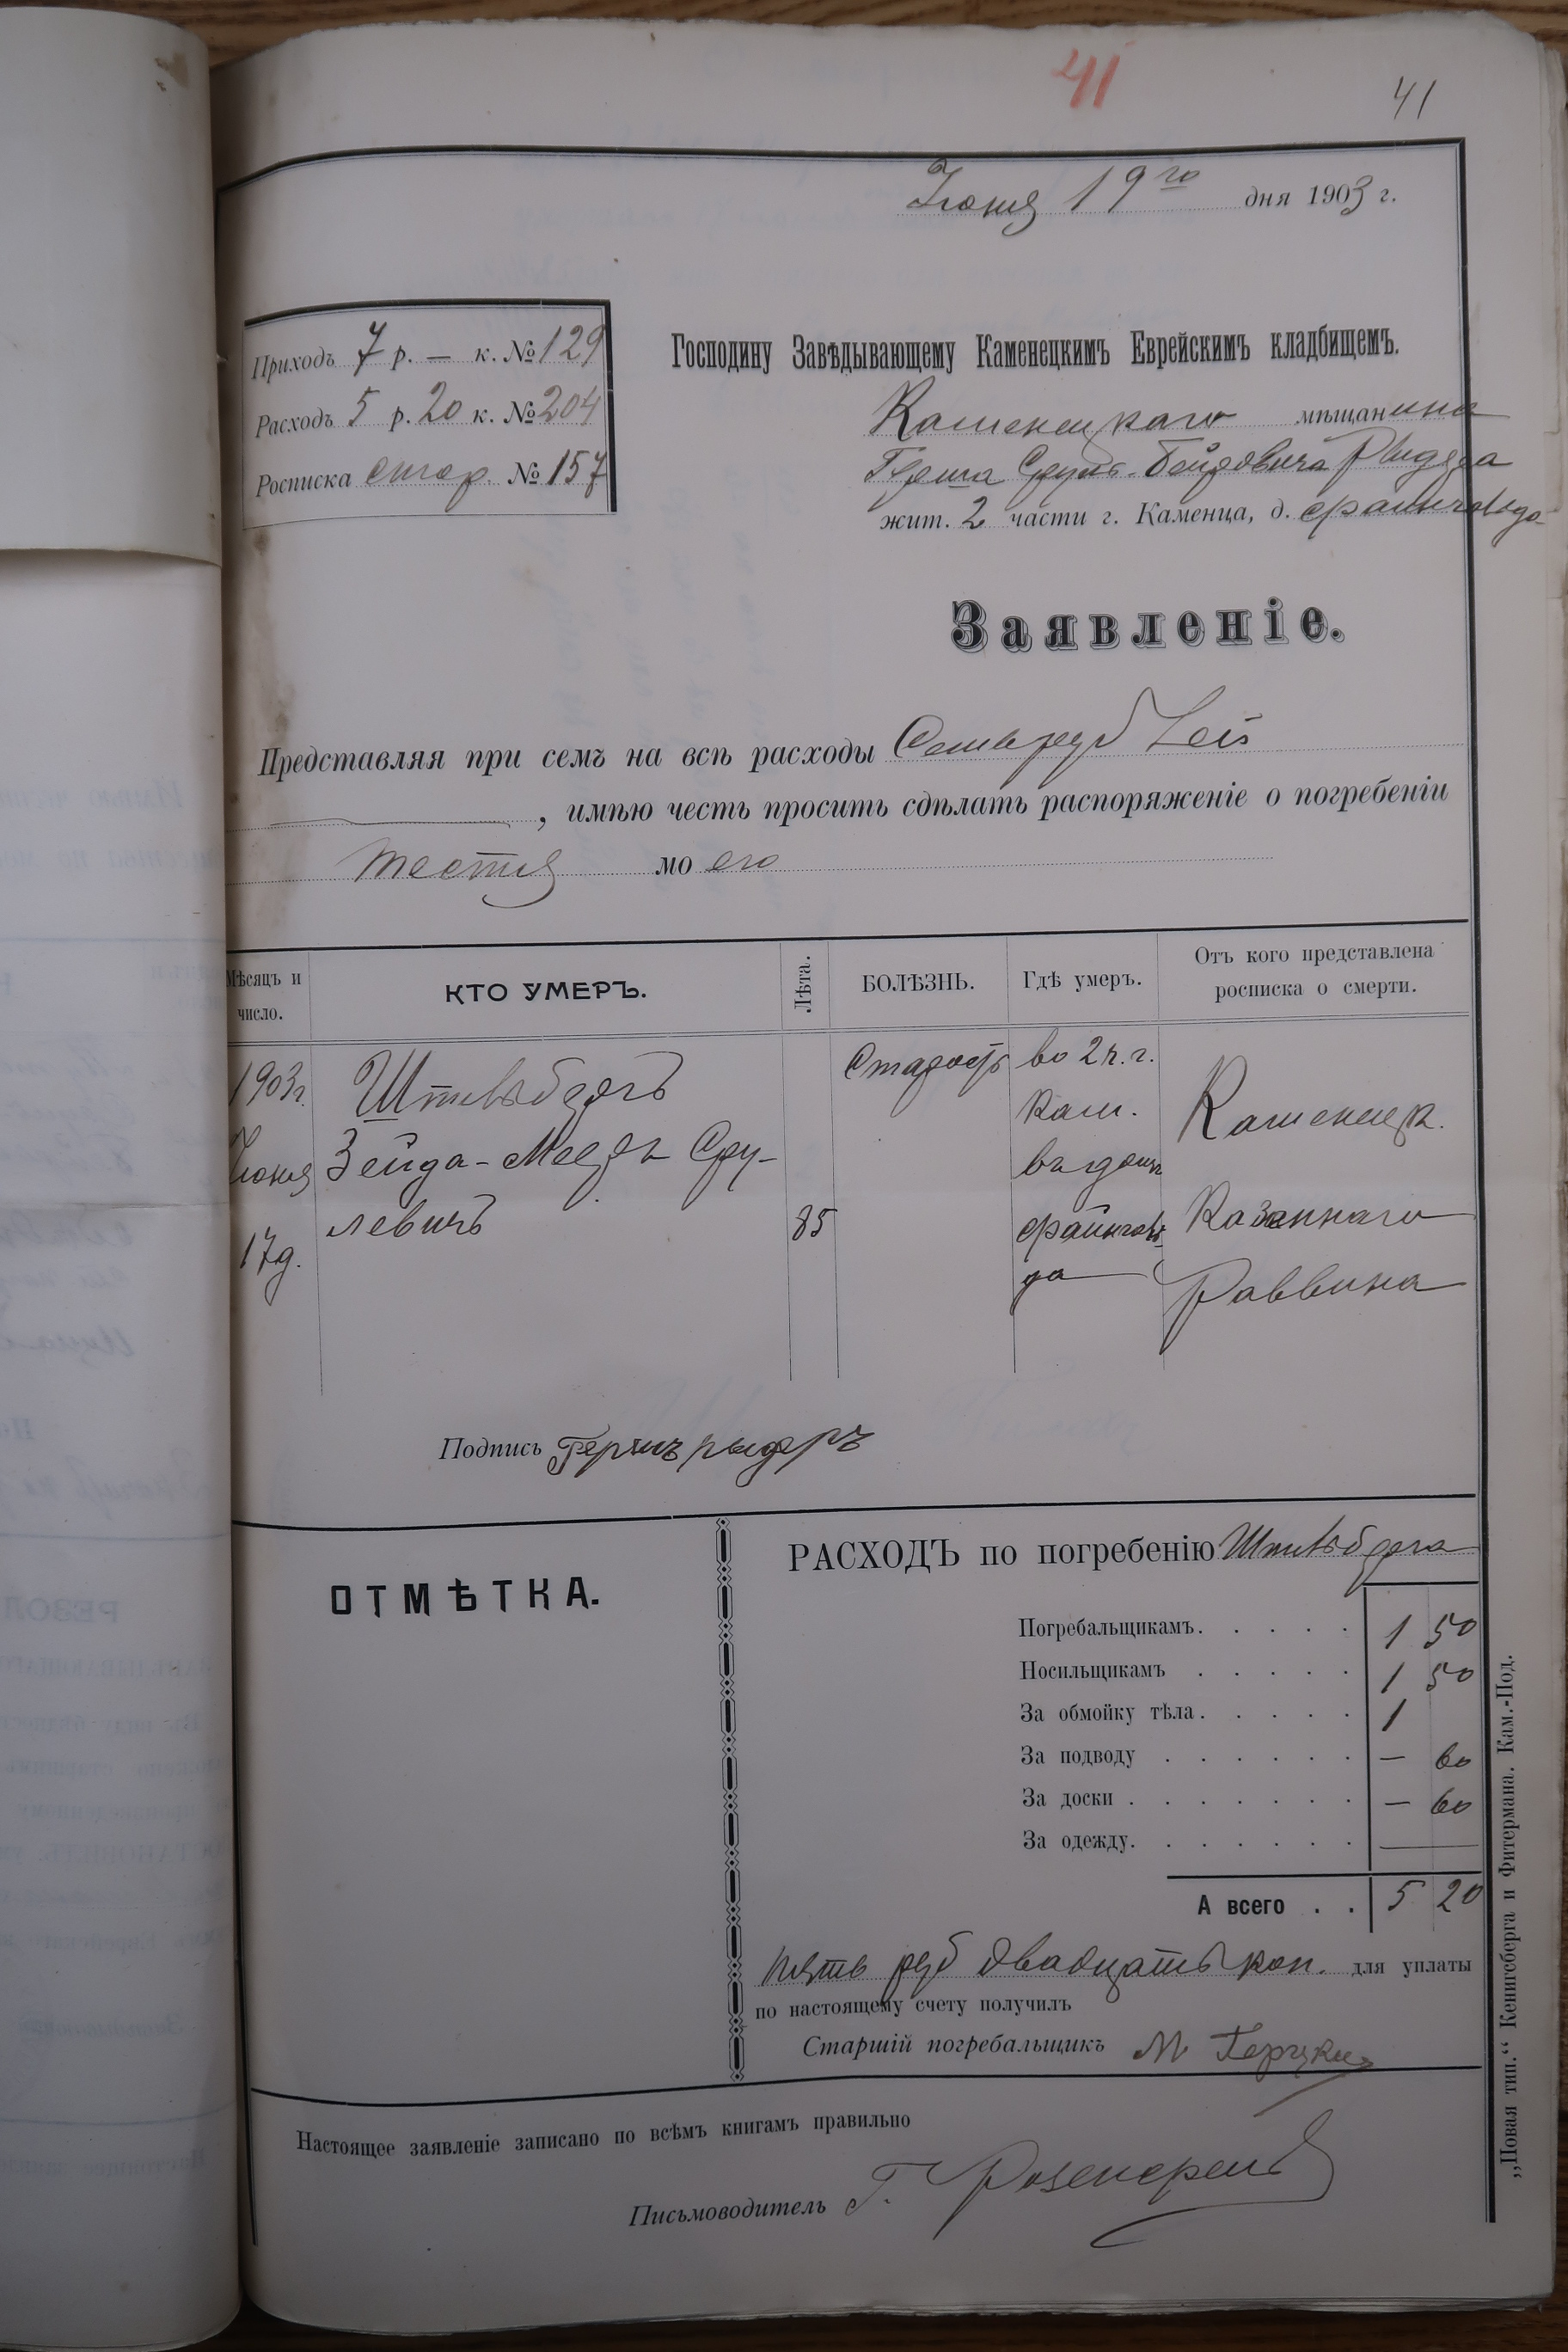 41
41
Іюня 19го дня 1903 г.
Приходъ 7 р. — к. № 129
Расходъ 5 р. 20 к. № 204
Росписка стар. № 157
Господину Завѣдывающему Каменецкимъ Еврейскимъ кладбищемъ.
Каменецкаго мѣщанина
Герша Сруль-
жит. 2 части г. Каменца, д.
Заявленіе.
Представляя при семъ на всѣ расходы Семь руб
, имѣю честь просить сдѣлать распоряженіе о погребеніи
тестя моего
Мѣсяцъ и число.
КТО УМЕРЪ.
Лѣта.
БОЛѢЗНЬ.
Гдѣ умеръ.
Отъ кого представлена росписка о смерти.
1903г.
Іюня
17д.
Зейда-Мееръ Сру-
левичъ
85
Старость
во 2 ч. г.
Кам.
въ домѣ
Каменецк.
Казеннаго
Раввина
Подпись Гершъ рыдеръ
ОТМѢТКА.
РАСХОДЪ по погребенію
Погребальщикамъ. . . . . 1 50
Носильщикамъ . . . . . 1 50
За обмойку тѣла. . . . . 1
За подводу . . . . . . — 60
За доски . . . . . . . — 60
За одежду. . . . . . . —
А всего . . 5 20
пять руб двадцать коп. для уплаты
по настоящему счету получилъ
Старшій погребальщикъ М
Настоящее заявленіе записано по всѣмъ книгамъ правильно
Письмоводитель Г.
„Новая тип.“ Кенигсберга и Фитермана. Кам.-Под.